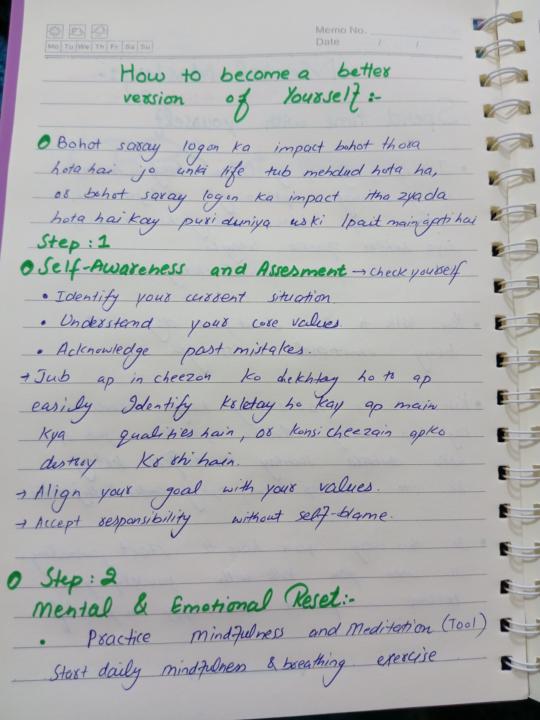 Memo No.
Mo Tu We Th Fr Sa Su
Date / /
How to become a better
version of Yourself:-
Bohot saray logon ka impact bohot thora
hota hai jo unki life tub mehdud hota ha,
or bohot saray logon ka impact itna zyada
hota hai kay puri duniya uski lpait main ajati hai
Step : 1
Self-Awareness and Assesment → check yourself
• Identify your current situation
• Understand your core values.
• Acknowledge past mistakes.
→ Jub ap in cheezon ko dekhtay ho to ap
easily Identify krletay ho kay ap main
kya qualities hain, or konsi cheezain apko
destroy kr rhi hain.
→ Align your goal with your values.
→ Accept responsibility without self-blame.
Step : 2
Mental & Emotional Reset:-
• Practice mindfulness and Meditation (Tool)
Start daily mindfulness & breathing exercise